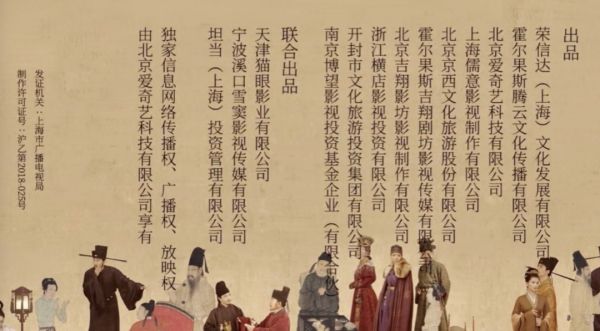 出品
荣信达（上海）文化发展有限公司
霍尔果斯腾云文化传播有限公司
北京爱奇艺科技有限公司
上海儒意影视制作有限公司
北京京西文化旅游股份有限公司
霍尔果斯吉翔剧坊影视传媒有限公司
北京吉翔影坊影视制作有限公司
浙江横店影视投资有限公司
开封市文化旅游投资集团有限公司
南京博望影视投资基金企业（有限合伙）
联合出品
天津猫眼影业有限公司
宁波溪口雪窦影视传媒有限公司
坦当（上海）投资管理有限公司
独家信息网络传播权、广播权、放映权
由北京爱奇艺科技有限公司享有
发证机关：上海市广播电视局
制作许可证号：沪乙第2018-025号